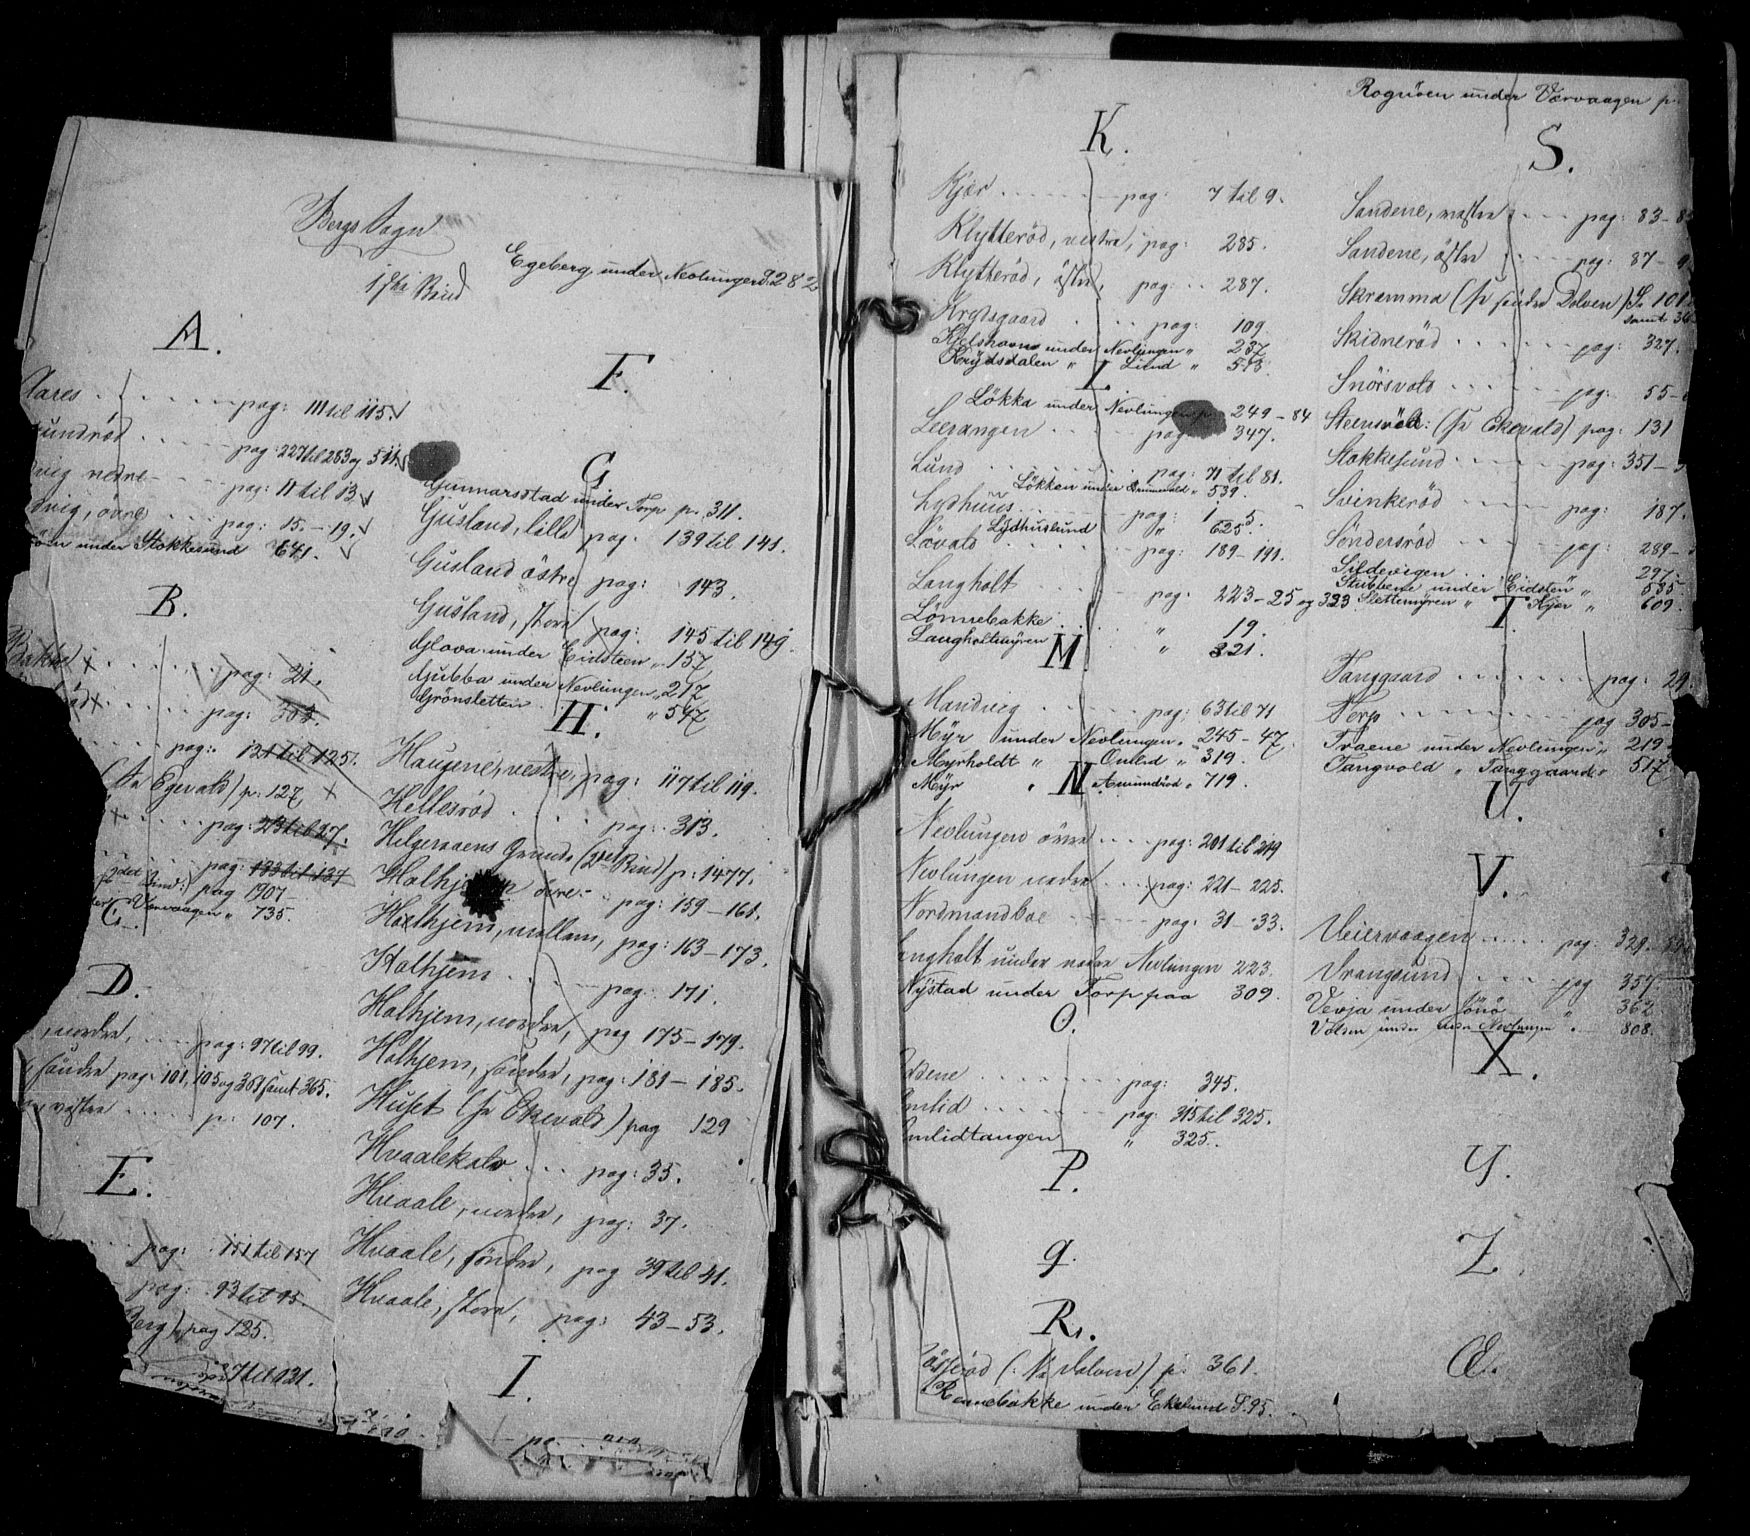 Bergs Sogn
1ste Bind
Egeberg under Nevlungen S. 282
A.
Aares pag: 111 til 115.
undrød pag: 227 til 283 og 511
vig nedre pag: 11 til 13
dvig, øvre pag: 15.-19.
under Stokkesund 641.
B.
Bakke pag: 21.
pag:
pag: 121 til 125.
Egevald) p: 127
pag: 23 til 27.
pag: 133 til 137
2det Bind:) pag 1907
Værvaagen " 735.
C.
D.
nordre, pag: 97 til 99.
søndre pag: 101, 105 og 361 samt 365.
vestre p: 107.
E.
pag: 151 til 157
pag: 93 til 95.
Berg) pag 125.
til 121.
F.
G.
Gunnarsstad under Torp p. 311.
Gusland, lille pag. 139 til 141.
Gusland østre pag: 143.
Gusland, store pag: 145 til 149.
Glova under Eidsteen " 157
Gjubba under Nevlungen " 217
Grönsletten " 547
H.
Haugene, vestre, pag: 117 til 119.
Hellesrød pag: 313.
Helgeraaens Grund (2det Bind) p: 1477.
Holhjem øvre pag: 159-161.
Holhjem, mellem, pag: 163-173.
Holhjem pag: 171.
Holhjem, nordre, pag 175-179.
Holhjem, søndre, pag: 181-185.
Huset (se Ekevald) pag 129
Hvaalekalv pag: 35.
Hvaale, nordre, pag: 37.
Hvaale, søndre, pag 39 til 41.
Hvaale, store, pag: 43-53.
I.
K.
Kjær pag: 7 til 9.
Klytterød, vestre, pag: 285.
Klytterød, østre, pag: 287.
Krogsgaard pag: 109
Kjelshavn under Nevlungen " 237
Krydsdalen " Lund " 513.
L.
Løkka under Nevlungen p: 249-84
Leerangen pag 347.
Lund pag: 71 til 81.
Løkken under Brunevald " 539.
Lydhuus pag: 1 5.
Lydhuslund " 625
Løvald pag: 189-191.
Langholt pag: 223-25 og 323
Lønnebakke " 19.
Langholtmyren " 321.
M
Mandvig pag: 63 til 71
Myr under Nevlungen " 245-47.
Myrholdt " Omlid " 319.
Myr " Amundrød " 719.
N
Nevlungen øvre pag: 201 til 219
Nevlungen nedre pag: 221-225.
Nordmandboe pag: 31-33.
ngholt under nedre Nevlungen 223.
Nystad under Torp paa 309.
O.
dene pag: 345.
mlid pag: 315 til 325.
mlidtangen " 325.
P.
q.
R.
(: Nr Dolven) p. 361.
Rønnebakke under Eklund S. 95.
Rognøen under Værvaagen p.
S.
Sandene, vestre, pag: 83-8
Sandene, østre pag: 87-
Skramma (se søndre Dolven) S. 101
samt 36
Skidnerød pag: 327.
Snørsvold pag: 55-
Steensvold: (se Ekevald) pag: 131
Stokkesund pag: 351-
Svinkerød pag: 187.
Søndersrød pag: 289-
Sildevigen 297
Stubbene under Eidsten " 535
Slettemyren " Kjær " 609.
T.
Tanggaard pag: 29
Torp pag 305-
Traene under Nevlungen " 219
Tangvold " Tanggaard " 517
U.
V.
Veiervaagen pag: 329-
Vrangsund pag 357
Vevja under " 362
Volten under øvre Nevlungen " 808.
X.
Y.
Z.
Œ.